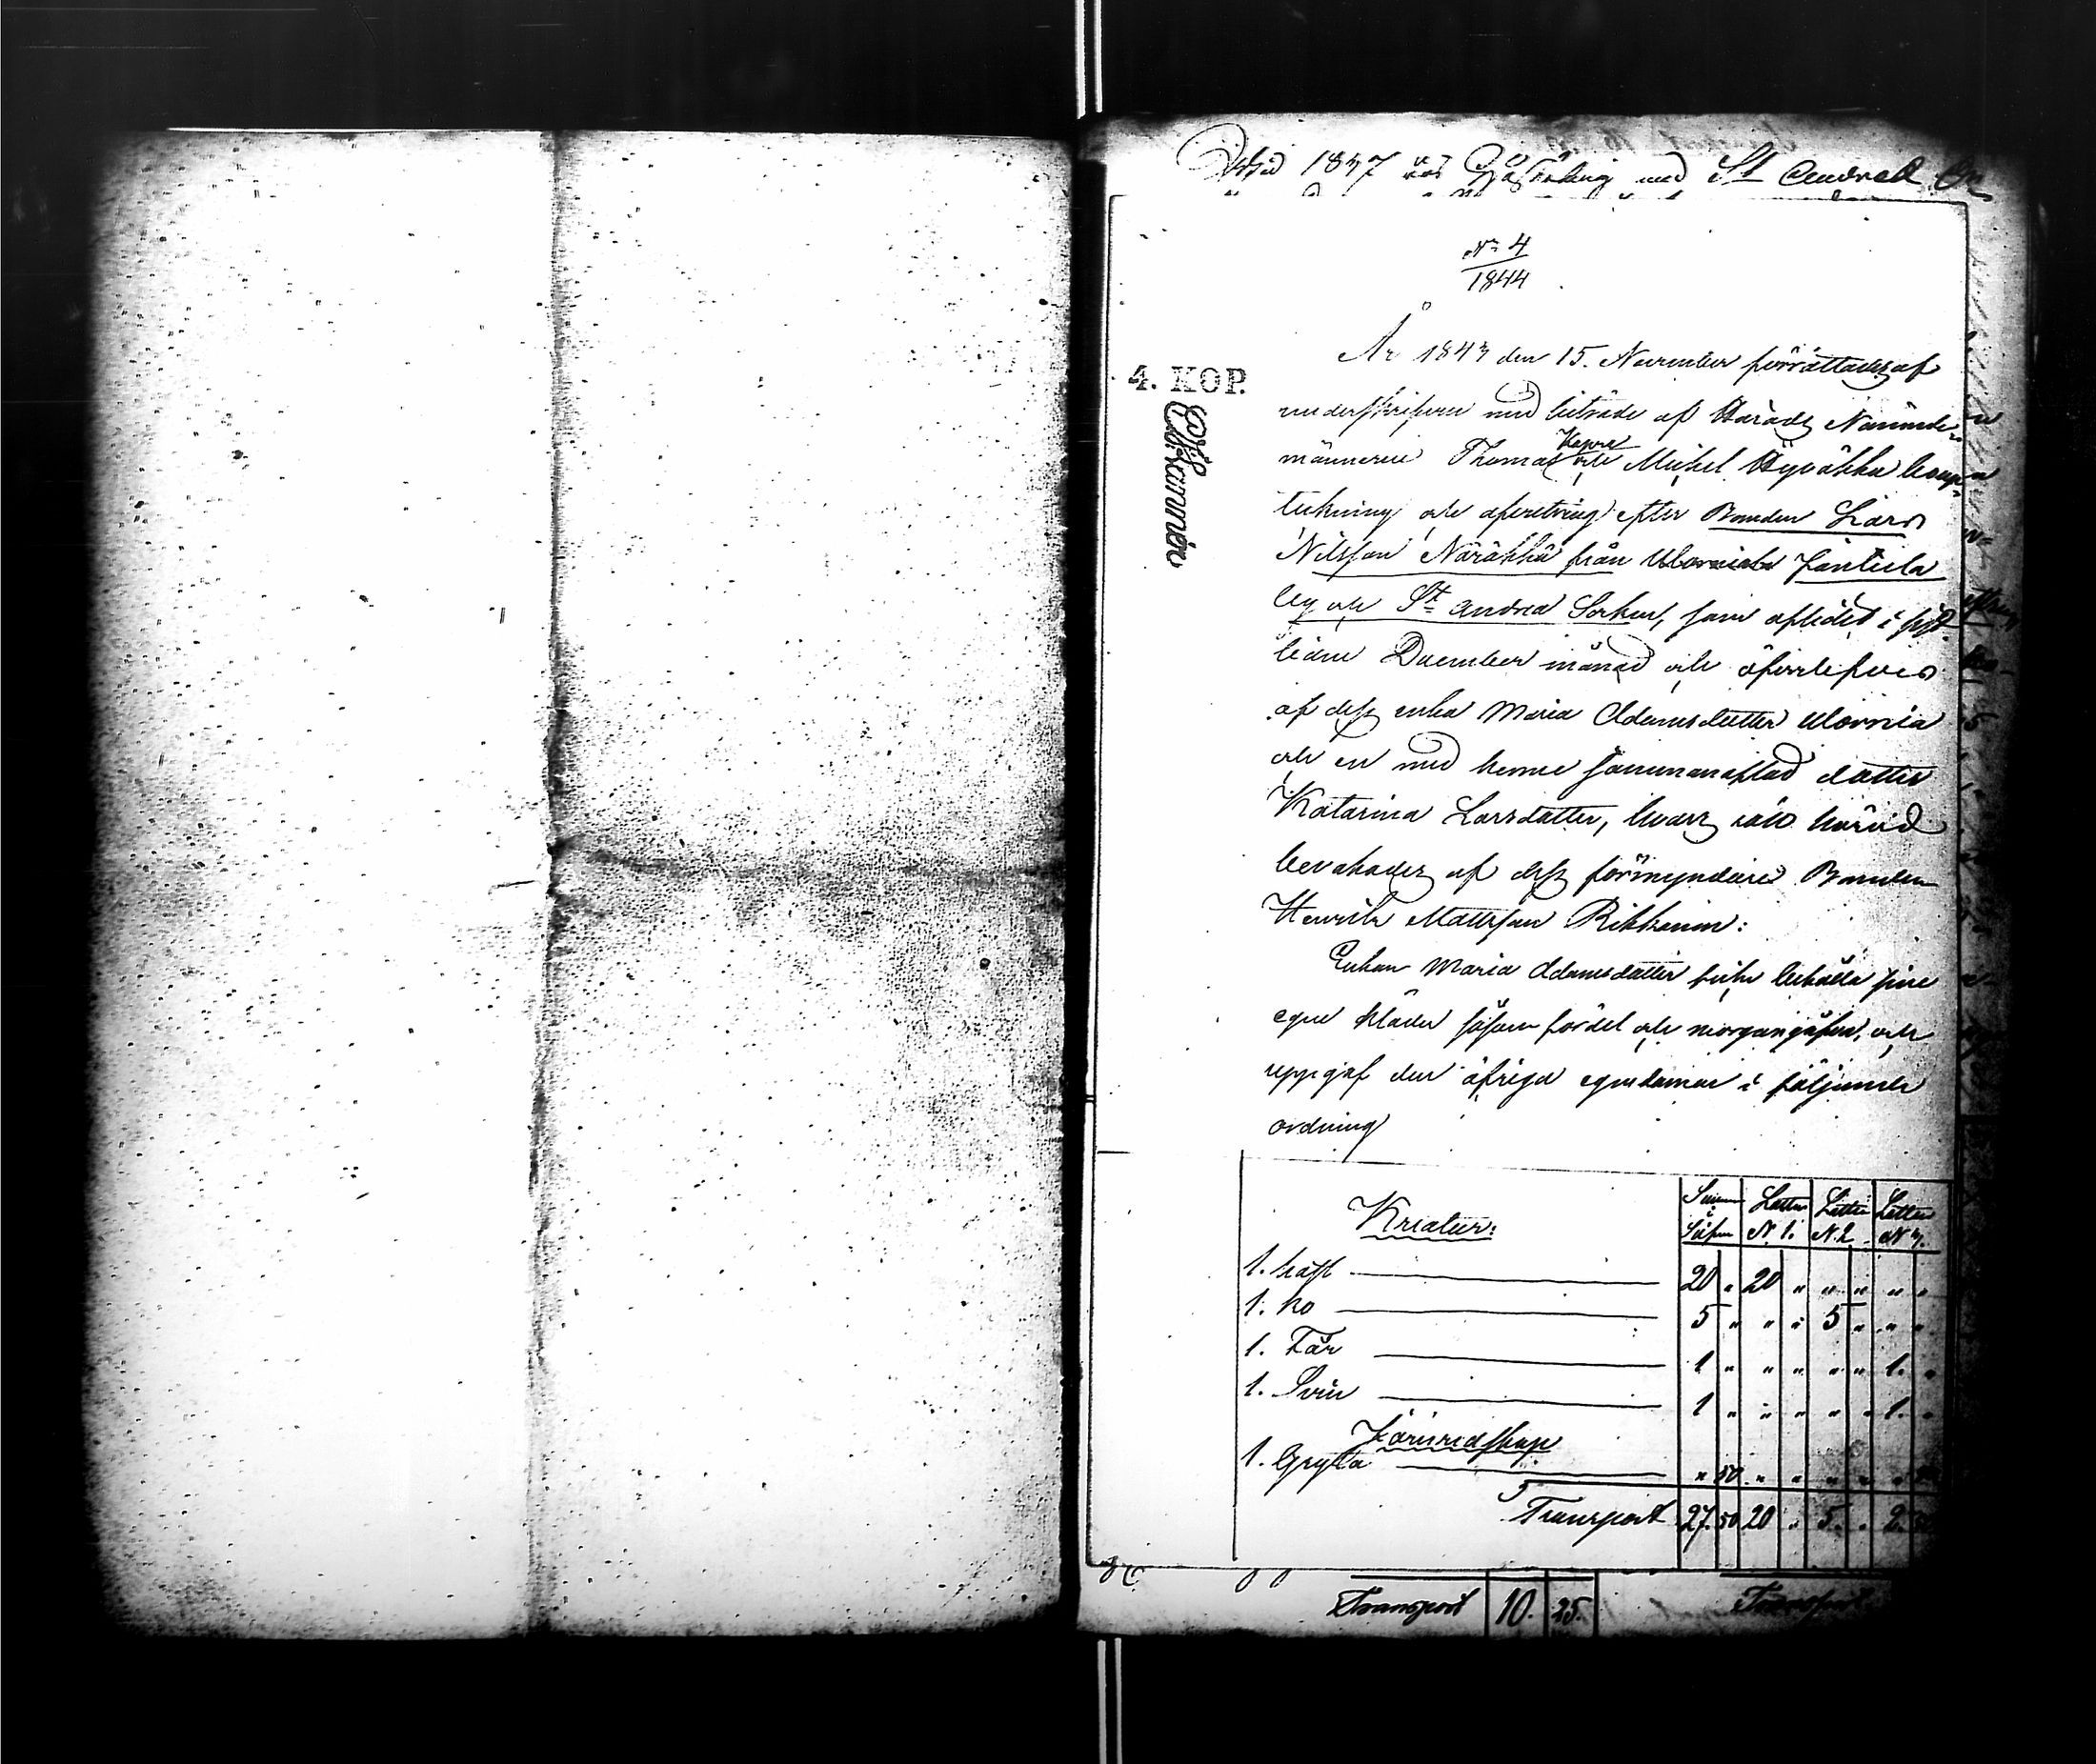 1837 med St Andreæ
No 4
1844
År 1843 den 15. November förrättades af
4. KOP.
underskrifven med biträde af Härads Nämnde-
männerne Thomas Kapra och Michel Hyväkkä boupp-
tekning och afvittring efter Bonden Lars
Nilsson Näräkkä från Jäntilä
by och St Andreæ Sockn, som aflidit i sist-
ledne December månad och öfverlefves
af dess enka Maria Adamsdotter
och en med henne sammanaflad dotter
Katarina Larsdotter, hvars rätt härvid
bevakades af dess förmyndare Bonden
Henrik Mattsson Rikkonen:
Enkan Maria Adamsdotter fick behålla sine
egne kläder såsom fördel och morgongåfva, och
uppgaf den öfriga egendomen i följande
ordning
Kreatur: Summa i Silfver Lotten N. 1. Lotten N. 2 Lotten N 3.
1. häst 20 " 20 " " " " "
1. ko 5 " " " 5 " " "
1. Får 1 " " " " " 1. "
1. Svin 1 " " " " " 1. "
Jernredskap
1. Gryta " 50 " " " " "
Transport 27. 50 20 " 5. " 2.
Transport 10. 25. Transport